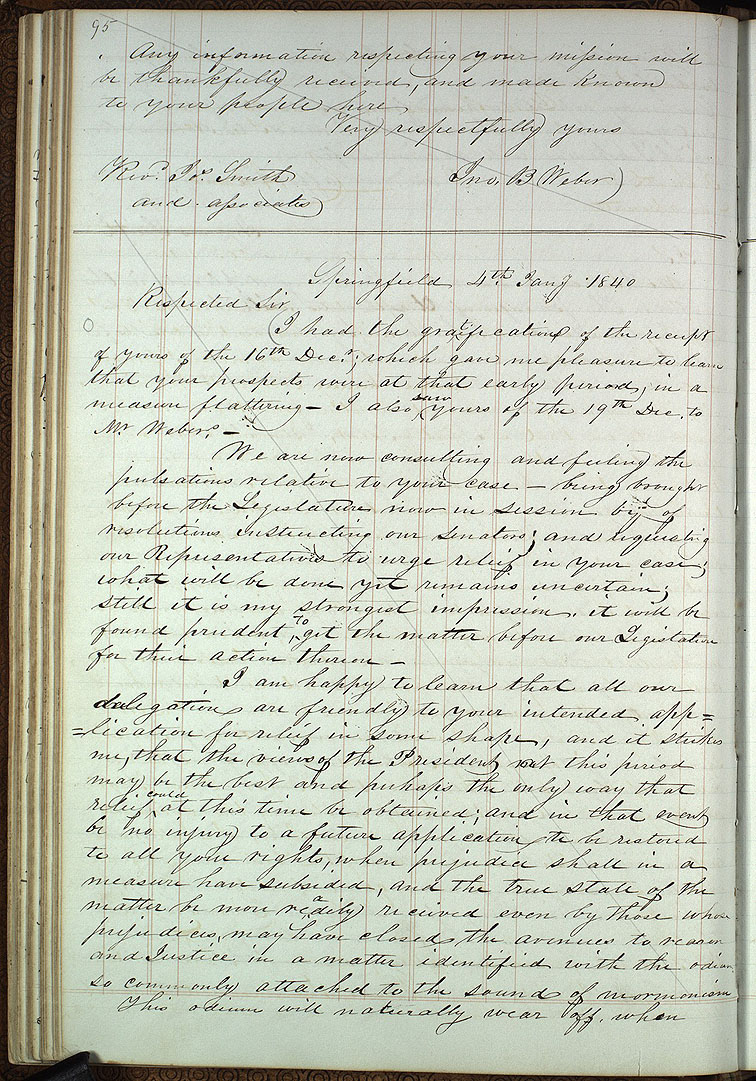 95
Any information respecting your mission will
be thankfully received, and made known
to your people here
Very respectfully yours
Revd. Jos. Smith Jno. B Weber
and associates
Springfield 4th. Jany 1840
Respected Sir
I had the gratification of the receipt
of yours of the 16th Dec.; which gave me pleasure to learn
that your prospects were at that early period, in a
measure flattering— I also saw yours of the 19th Dec. to
Mr Weber.—
We are now consulting and feeling the
pulsations relative to your case— being brought
before the Legislature now in session by of
resolutions instructing our Senators; and requesting
our Representatives to urge relief in your case;
what will be done yet remains uncertain;
still it is my strongest impression. it will be
found prudent, to get the matter before our Legislature
for their action thereon—
I am happy to learn that all our
delegation are friendly to your intended app=
=lication for relief in some shape, and it strikes
me, that the views of the President at this period
may be the best and perhaps the only way that
relief could at this time be obtained; and in that event
be no injury to a future application to be restored
to all your rights, when prejudice shall in a
measure have subsided, and the true state of the
matter be more readily received even by those whose
prejudices may have closed the avenues to reason
and Justice in a matter identified with the odium
so commonly attached to the sound of mormonism
This odium will naturally wear off. when